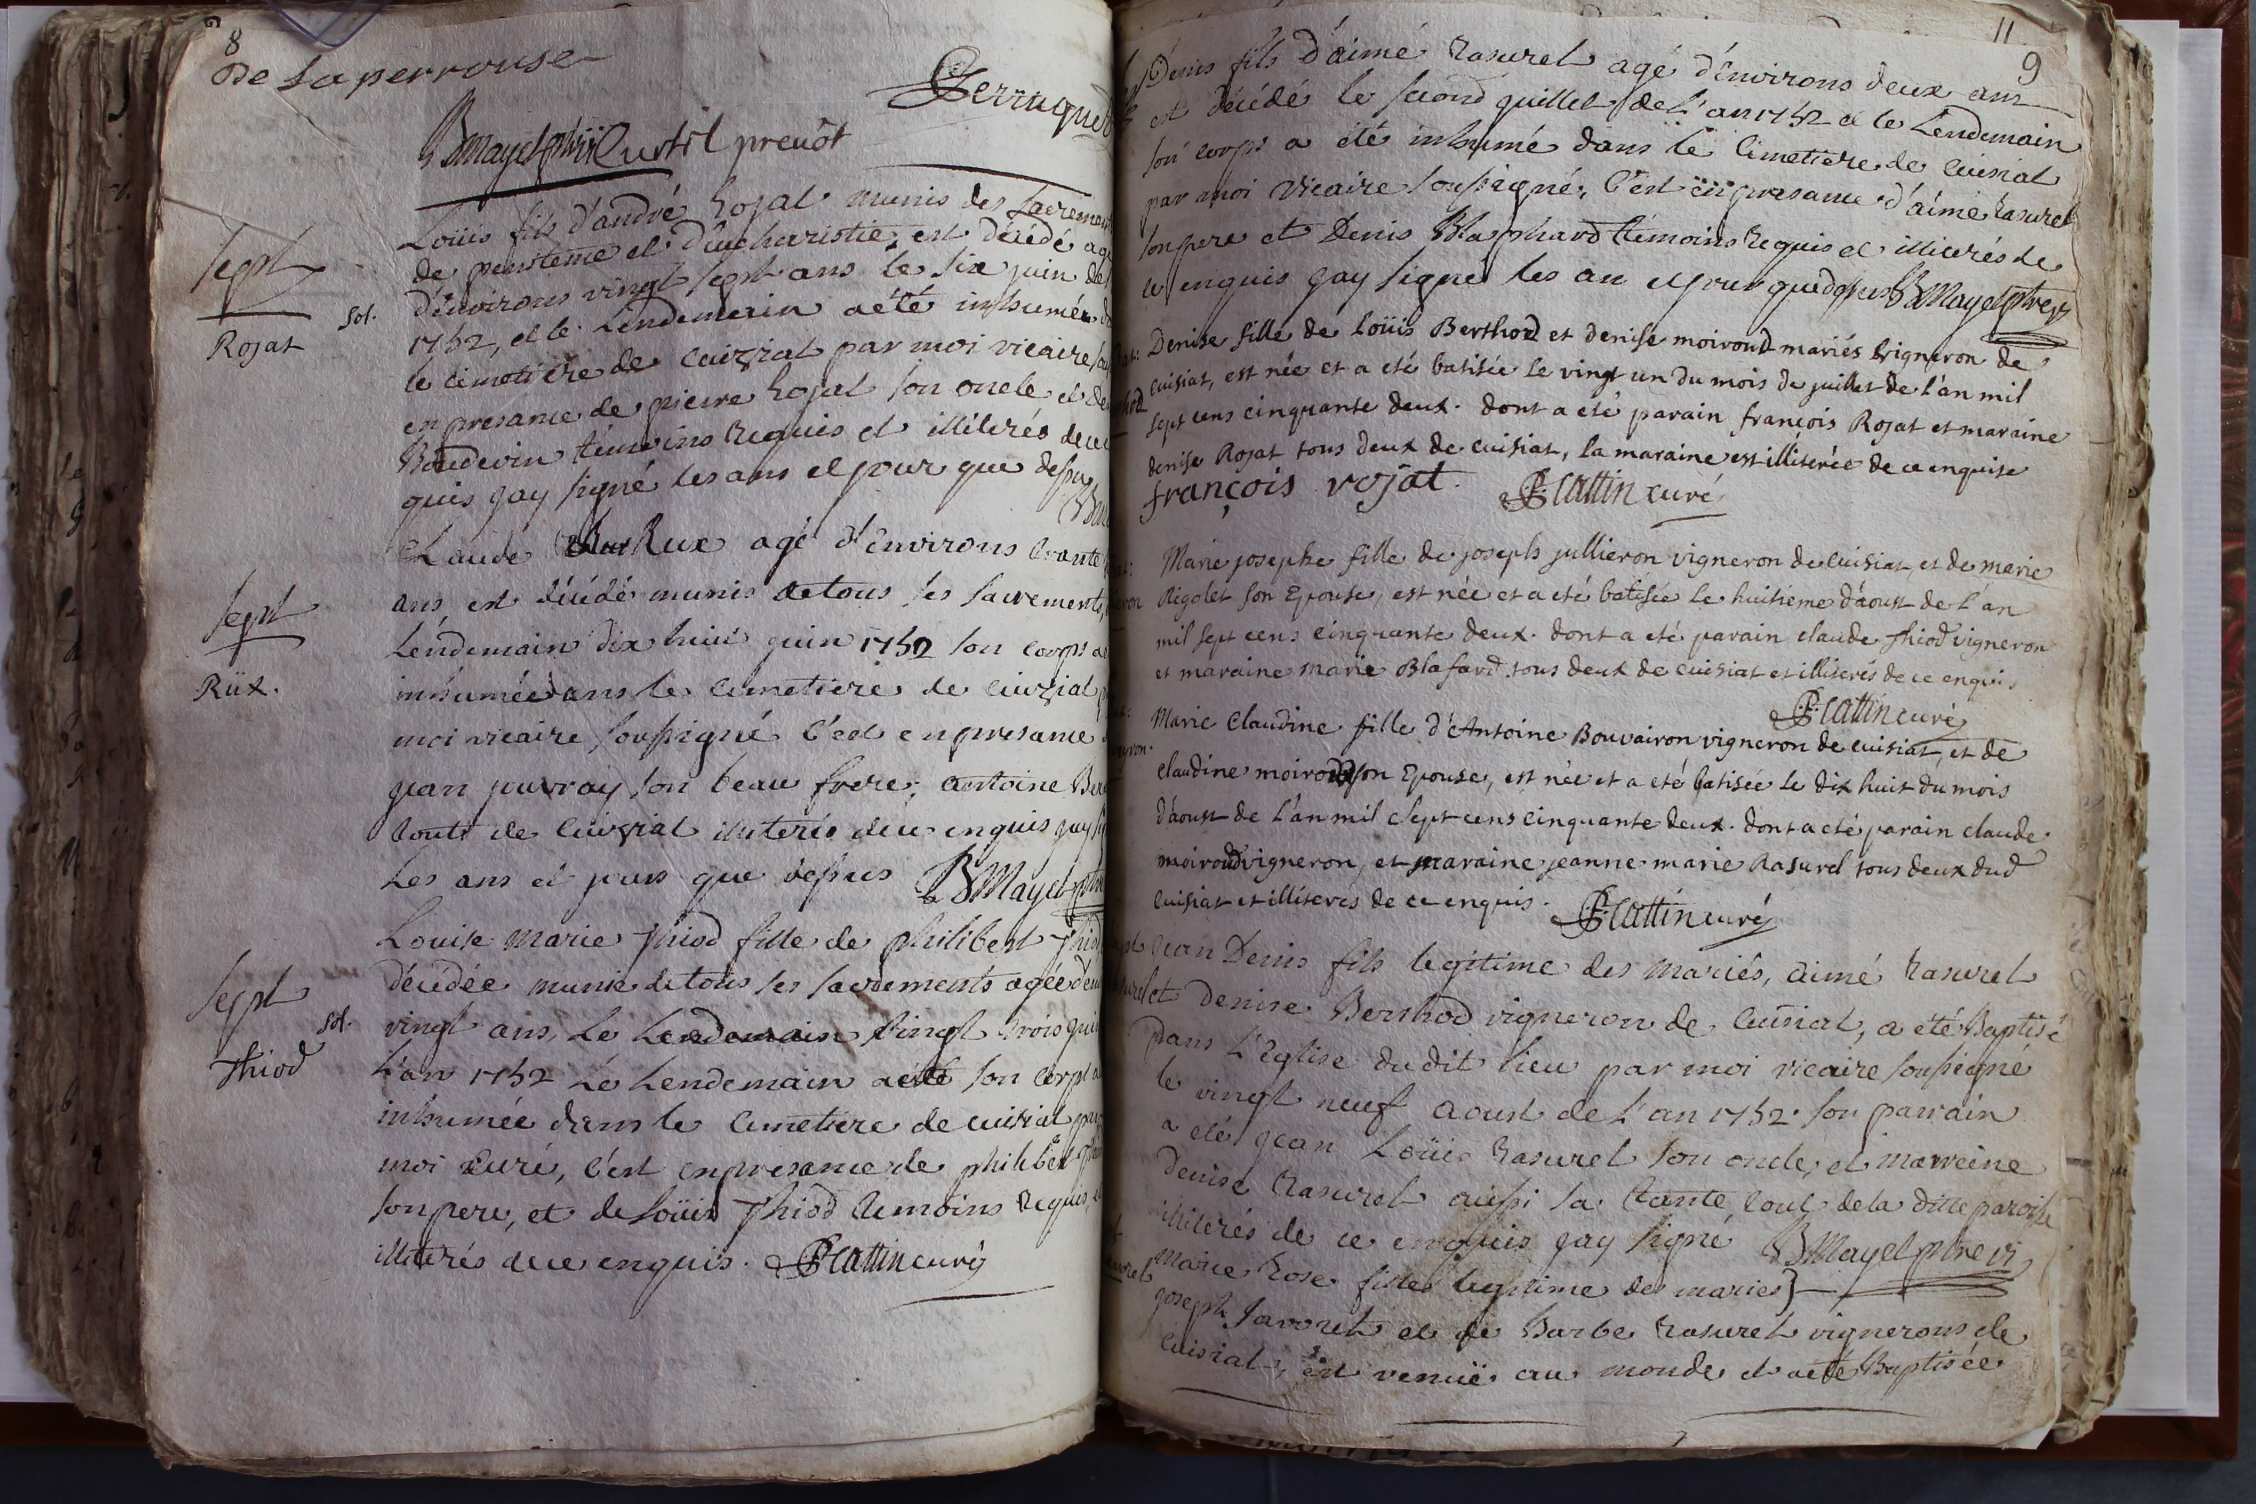 8
De Laperrouse
Perruquet
BMayet ptre vi Curtil prevôt
Sept
Rojat
sol.
Loüis fils d'andré Rojat munis des Sacremants
de penitence et d'eucharistie; est décédé agé
d'environs vingt sept ans le six juin de
1752, et le Lendemain a été inhumé da
le cimetiere de cuiziat par moi vicaire sou
en presance de pierre Rojat son oncle et de
Baudevin témoins requis et illiterés de ce
quis jay signé les ans et jour que dessus
Sept
Rüx.
Claude Rux agé d'environs trante
ans est décédé munis de tous ses sacrements,
Léndemain dix huit juin 1752 son corps a
inhumée dans le cimetiere de cuiziat
moi vicaire soussigné C'est en presance
jean pouvray son beau frere; antoine Ber
touts de Cuiziat illiterés de ce enquis jay sig
Les ans et jour que dessus BMayet ptre
Sept
sol.
Thiod
Louise marie Thiod fille de philibert Thiod
décédée munie de tous ses sacrements agée d'en
vingt ans, Le Lendemain vingt trois juin
L'an 1752 Le Lendemain a été son corps a
inhumée dans le cimetiere de cuisiat par
moi curé, c'est en presance de philibert Thi
son pere, et de Loüis Thiod temoins requis, et
illiterés de ce enquis. P. Cattin curé
11
9
Denis fils d'aimé Rasurel agé d'environs deux ans
est décédé le second juillet de L'an 1752 et le Lendemain
son corps a été inhumé dans le cimetiere de cuisiat
par moi vicaire soussigné; C'est en presance d'aimé Rasurel
son pere et Denis Blaphard témoins requis et illiterés de
ce enquis jay signé les an et jour que dessus BMayet ptre vi
Denise fille de Loüis Berthod et denise moiroud mariés vigneron de
cuisiat, est née et a eté batisée le vingt un du mois de juillet de l'an mil
sept cens cinquante deux. dont a eté parain françois Rojat et maraine
denise Rojat tous deux de cuisiat, la maraine est illiterée de ce enquise
françois rojat. P. Cattin curé
Marie josephe fille de joseph jullieron vigneron de Cuisiat, et de marie
Rigolet son Epouse, est née et a eté batisée le huitieme d'aoust de L'an
mil sept cens cinquante deux. dont a eté parain claude Thiod vigneron
et maraine marie Blafard tous deux de cuisiat et illiterés de ce enquis
P. Cattin curé
Marie Claudine fille d'Antoine Bouvairon vigneron de cuisiat, et de
claudine moiroud son Epouse, est née et a eté batisée le dix huit du mois
d'aoust de L'an mil sept cens cinquante deux. dont a eté parain claude
moiroud vigneron, et maraine jeanne marie Rasurel tous deux dud
cuisiat et illiterés de ce enquis. P. Cattin curé
Jean Denis fils legitime des mariés, aimé Rasurel
et denise Berthod vigneron de Cuisiat, a été Baptisé
Dans L'eglise du dit lieu par moi vicaire soussigné
le vingt neuf aoust de L'an 1752. son parrain
a eté jean Loüis Rasurel son oncle, et marreine
Denise Rasurel aussi sa tante tout de la ditte paroisse
illiterés de ce enquis jay signé BMayet ptre vi
marie Rose fille legitime des mariés
joseph Savoret et de Barbe Rasurel vignerons de
Cuisiat, est venuë au monde et a été Baptisée